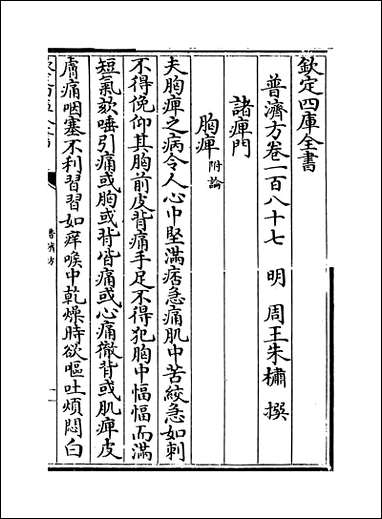 欽定四庫全書
普濟方卷一百八十七　明　周王朱橚　撰
諸痺門
胸痺附論
夫胸痺之病令人心中堅滿痞急痛肌中苦絞急如刺
不得俛仰其胸前皮背痛手足不得犯胸中愊愊而滿
短氣欬唾引痛或胸或背皆痛或心痛徹背或肌痺皮
膚痛咽塞不利習習如痒喉中乾燥時欲嘔吐煩悶白
普濟方